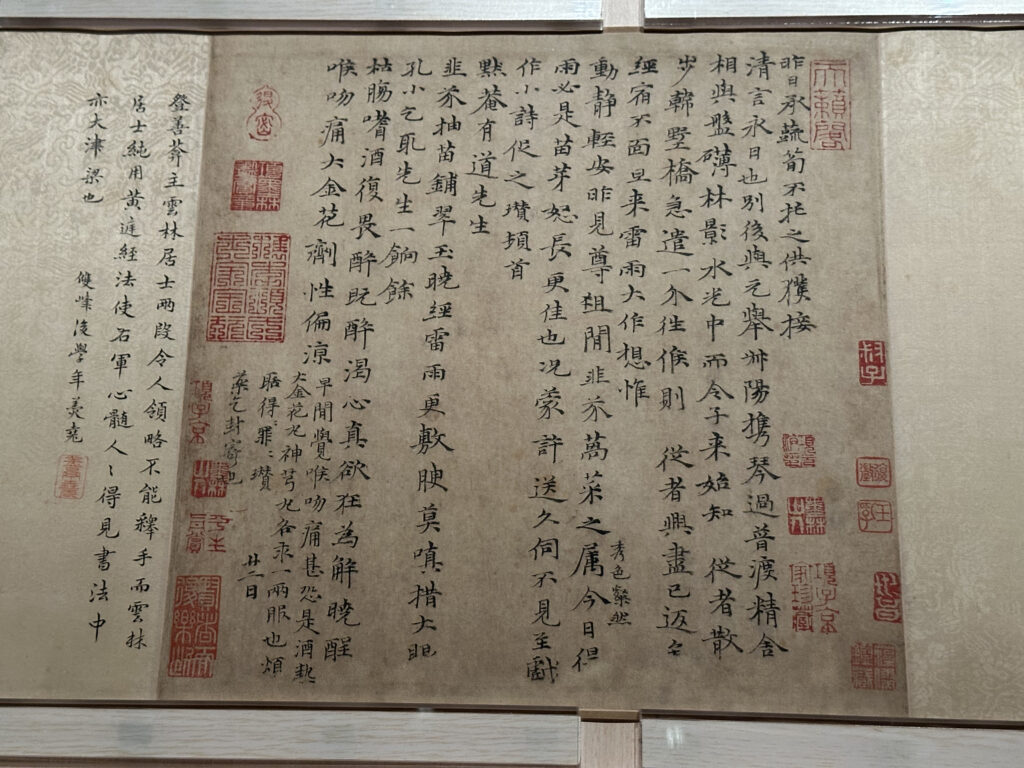 昨日承蔬筍不托之供獲接
清言永日也別後與元舉丱陽携琴過普渡精舍
相與盤礴林影水光中而令子来始知 從者散
步韓墅橋急遣一介往候則 從者興盡已迈矣
經宿不面旦来雷雨大作想惟
動靜輕安昨見尊俎間韭芥萵菜之属今日得
秀色粲然
雨必是苗芽怒長更佳也况蒙許送久伺不見至戲
作小詩促之瓚頓首
點菴有道先生
韭芥抽苗鋪翠玉曉經雷雨更敷腴莫嗔措大眼
孔小乞取先生一餉餘
枯腸嗜酒復畏醉既醉渴心真欲狂為解曉酲
喉吻痛大金花劑性偏涼
早間覺喉吻痛甚恐是酒熱
大金花丸神芎丸各乘一兩服也煩
聒得罪：瓚 廿二日
藥乞封寄也
登善莽主雲林居士兩段令人領略不能釋手而雲林
居士純用黄庭經法使右軍心髓人〻得見書法中
亦大津梁也
雙峰後學年羮堯
天籟閣